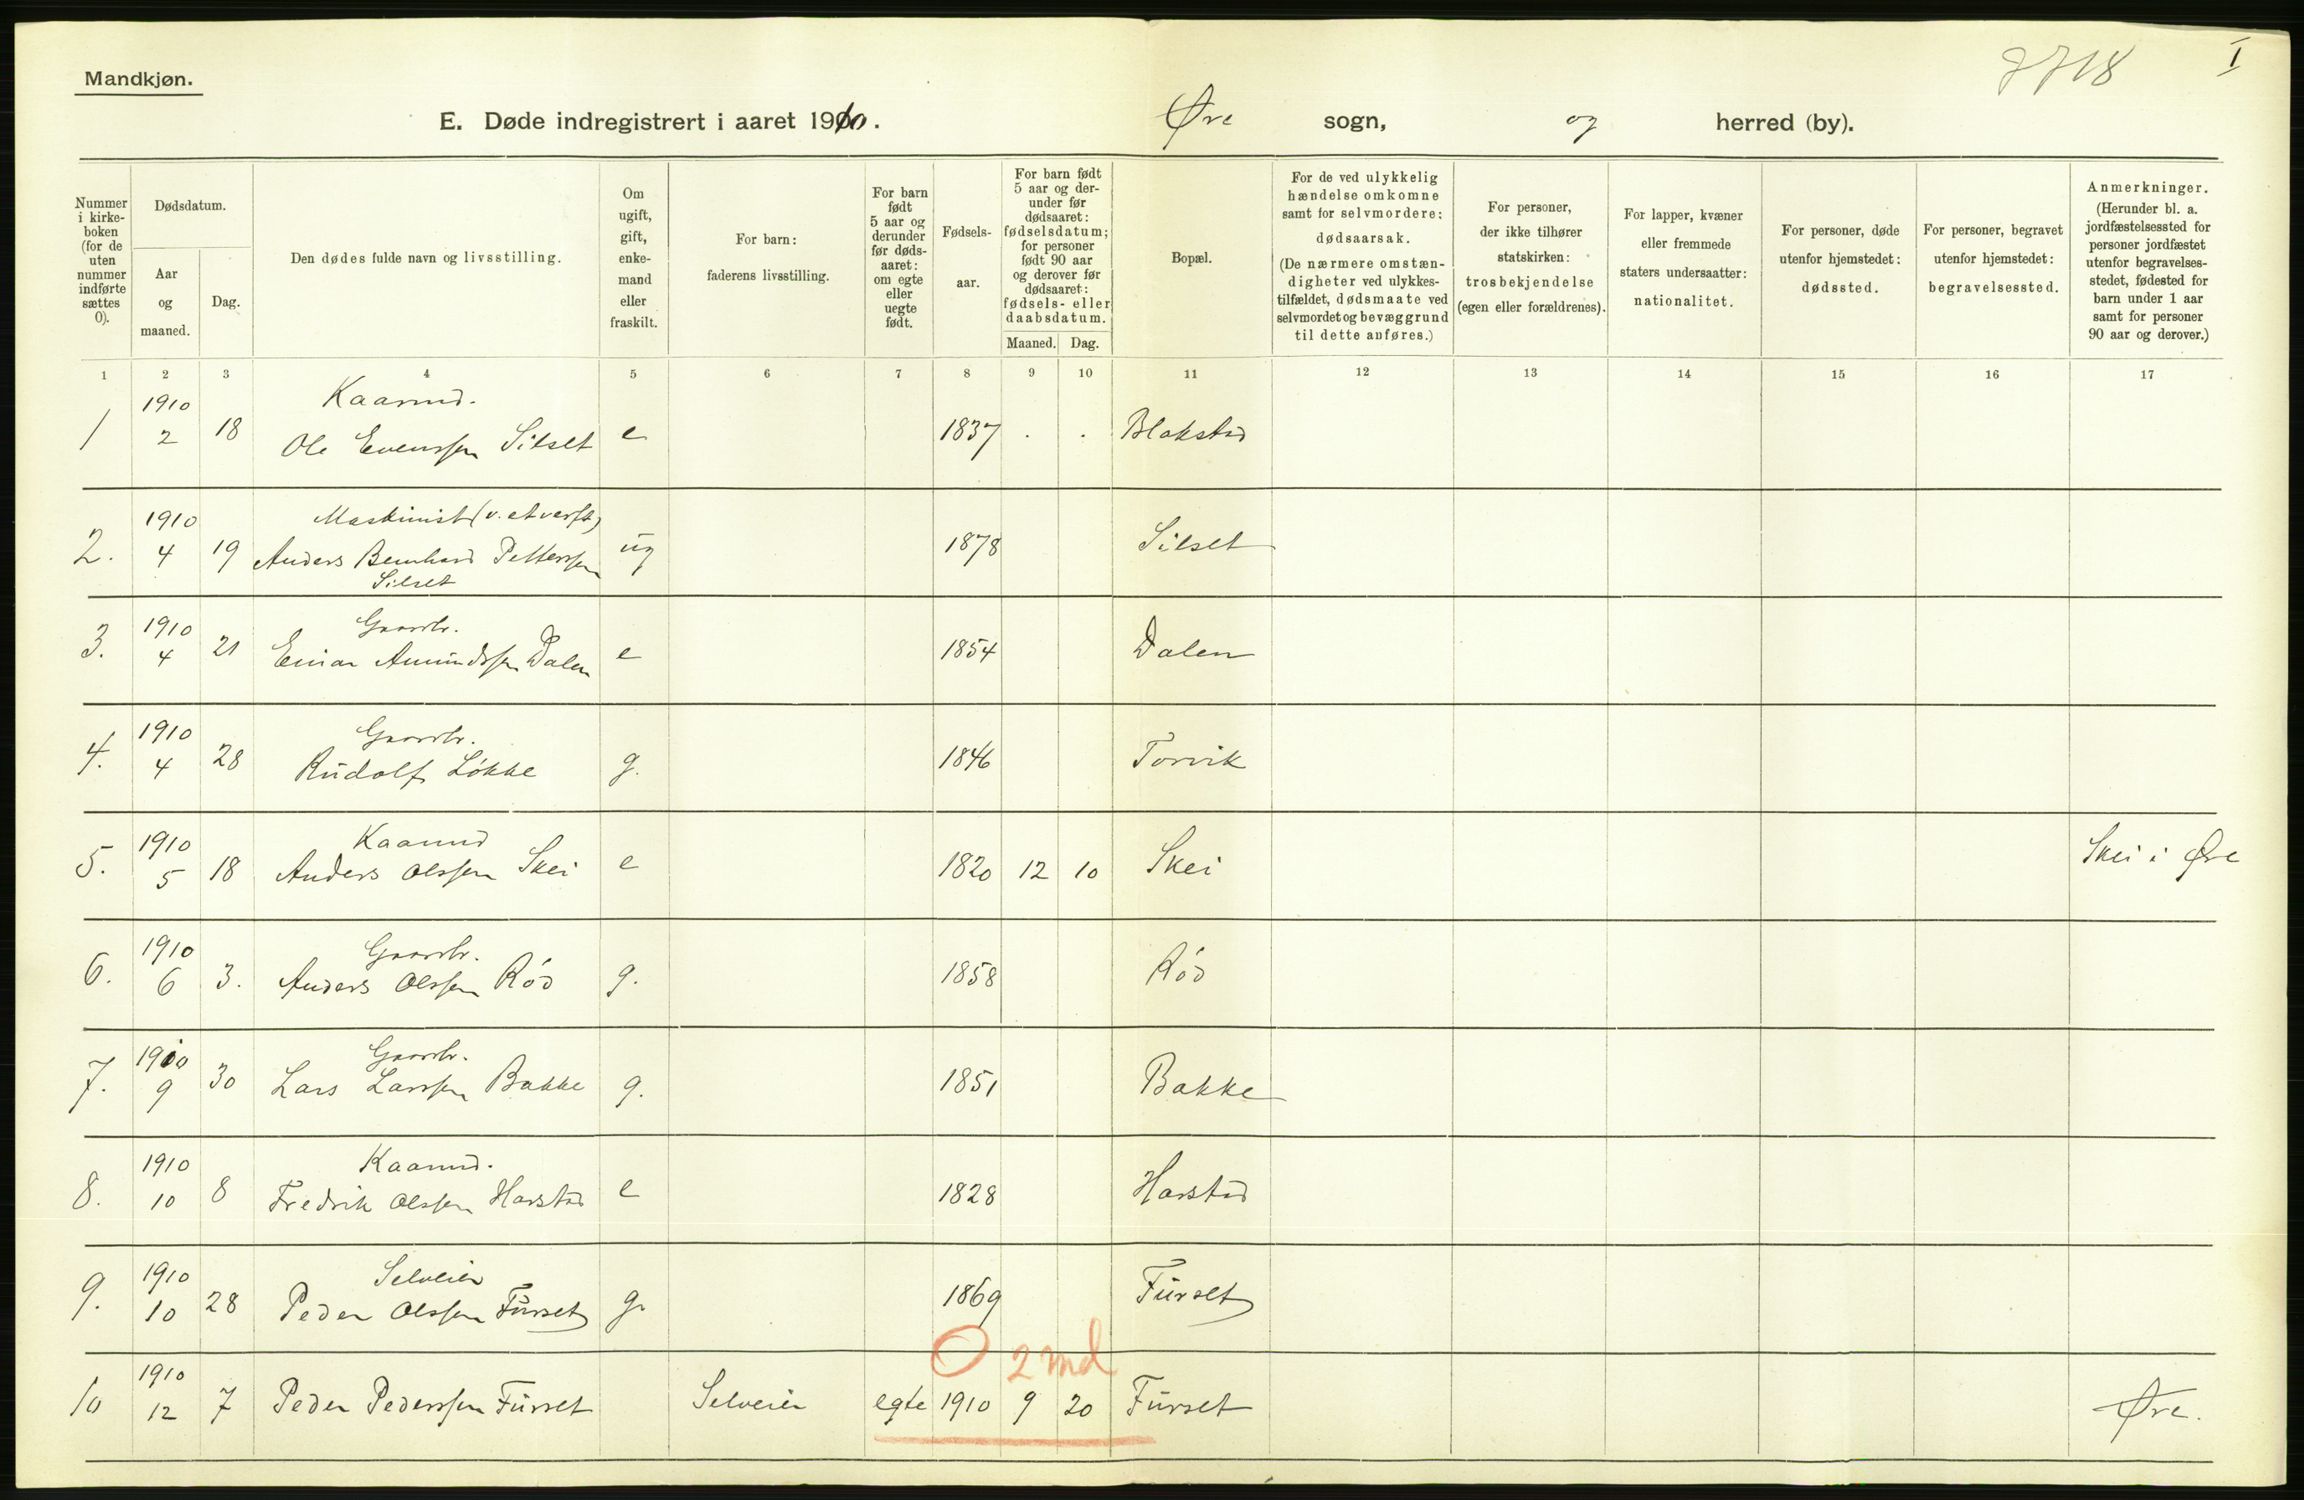 Mandkjøn.
7718
I
E. Døde indregistrert i aaret 1910. Øre sogn, og herred (by).
Nummer i kirke-boken (for de uten nummer indførte sættes 0).
Dødsdatum.
Aar og maaned.
Dag.
Den dødes fulde navn og livsstilling.
Om ugift, gift, enke-mand eller fraskilt.
For barn: faderens livsstilling.
For barn født 5 aar og derunder før døds-aaret: om egte eller uegte født.
Fødsels-aar.
For barn født 5 aar og der-under før dødsaaret: fødselsdatum; for personer født 90 aar og derover før dødsaaret: fødsels- eller daabsdatum.
Maaned. Dag.
Bopæl.
For de ved ulykkelig hændelse omkomne samt for selvmordere: dødsaarsak. (De nærmere omstæn-digheter ved ulykkes-tilfældet, dødsmaate ved selvmordet og bevæggrund til dette anføres.)
For personer, der ikke tilhører statskirken: trosbekjendelse (egen eller forældrenes).
For lapper, kvæner eller fremmede staters undersaatter: nationalitet.
For personer, døde utenfor hjemstedet: dødssted.
For personer, begravet utenfor hjemstedet: begravelsessted.
Anmerkninger. (Herunder bl. a. jordfæstelsessted for personer jordfæstet utenfor begravelses-stedet, fødested for barn under 1 aar samt for personer 90 aar og derover.)
1 2 3 4 5 6 7 8 9 10 11 12 13 14 15 16 17
1910 Kaarmd.
1 2 18 Ole Evenssen Silset e 1837 . . Blakstad
1910 Maskinist (v. et verft)
2. 4 19 Anders Bernhard Petterssen ug 1878 Silset
Silset
1910 Gaardbr.
3. 4 21 Einar Amundssen Dalen e 1854 Dalen
1910 Gaardbr.
4. 4 28 Rudolf Løkke g. 1846 Torvik
1910 Kaarmd
5. 5 18 Anders Olssen Skei e 1820 12 10 Skei Skei i Øre
1910 Gaardbr.
6. 6 3. Anders Olssen Rød g. 1858 Rød
1910 Gaardbr.
7. 9 30 Lars Larssen Bakke g. 1851 Bakke
1910 Kaarmd.
8. 10 8 Fredrik Olssen Harstad e 1828 Harstad
1910 Selveier
9. 10 28 Peder Olssen Furset g. 1869 Furset
0 2 md
1910
10 12 7 Peder Pederssen Furset Selveier egte 1910 9 20 Furset Øre.